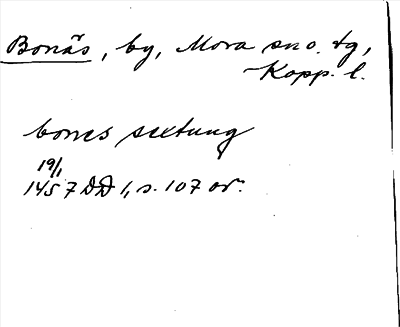 Bonäs, by, Mora sno. tg,
Kopp. l.
bones sextung
19/1
1457 DD 1, s. 107 or.